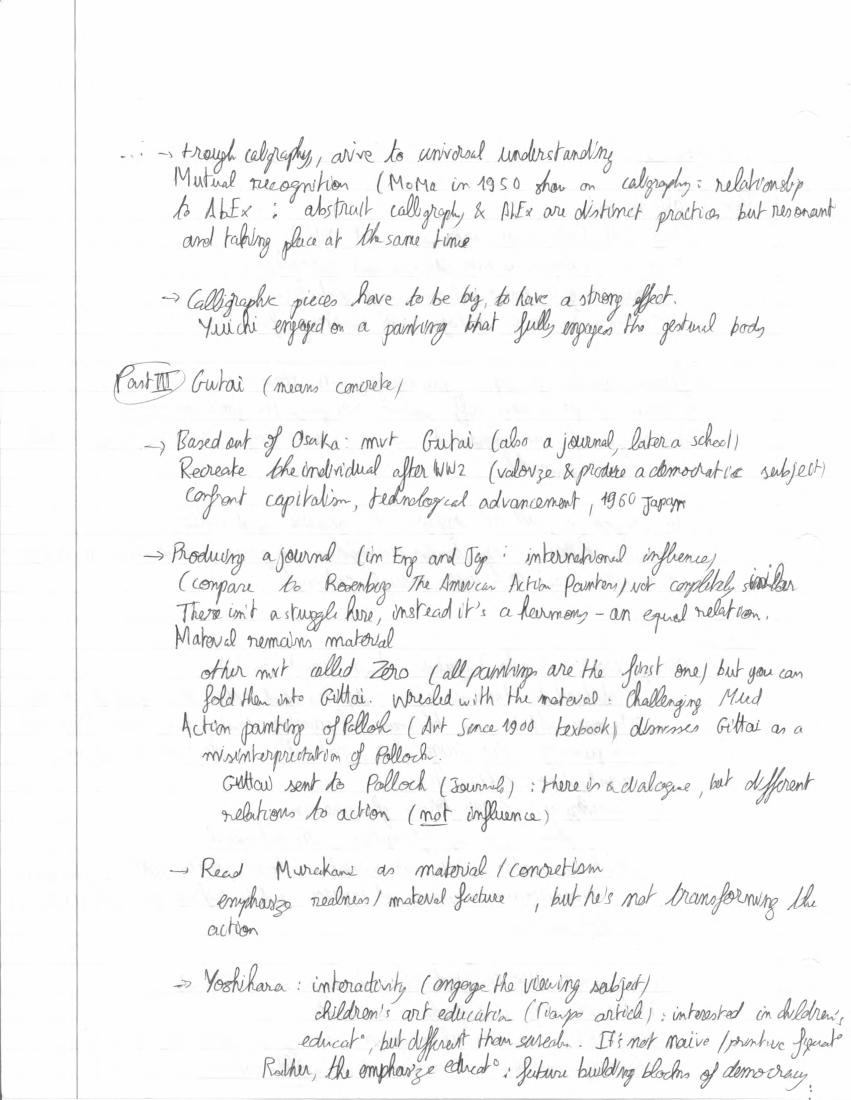 ... → trough caligraphy, arive to universal understanding
Mutual recognition (MoMa in 1950 show on caligraphy: relationship
to AbEx: abstract calligraphy & AbEx are distinct practices but resonant
and taking place at the same time
→ Calligraphic pieces have to be big, to have a strong effect.
Yuichi engaged on a painting that fully engages the gestural body
Part III Gutai (means concrete)
→ Based out of Osaka: mvt Gutai (also a journal, later a school)
Recreate the individual after WW2 (valorize & produce a democratic subject)
Confront capitalism, technological advancement, 1960 Japan
→ Producing a journal (in Eng and Jap: international influence)
(compare to Rosenberg The American Action Painters) not completely similar
There isn't a struggle here, instead it's a harmony - an equal relation.
Material remains material
other mvt called Zero (all paintings are the first one) but you can
fold them into Guttai. Wresled with the material: Challenging Mud
Action painting of Pollock (Art Since 1900 texbook) dismisses Guttai as a
misinterpretation of Pollock.
Guttai sent to Pollock (Journals): there is a dialogue, but different
relations to action (not influence)
→ Read Murakami as material / concretism
emphasize realness / material facture, but he's not transforming the
action
→ Yoshihara: interactivity (engage the viewing subject)
children's art education ( article): interested in children's
educat°, but different than surealm. It's not naive / primitive figurat°
Rather, the emphasize educat°: future building blocks of democracy